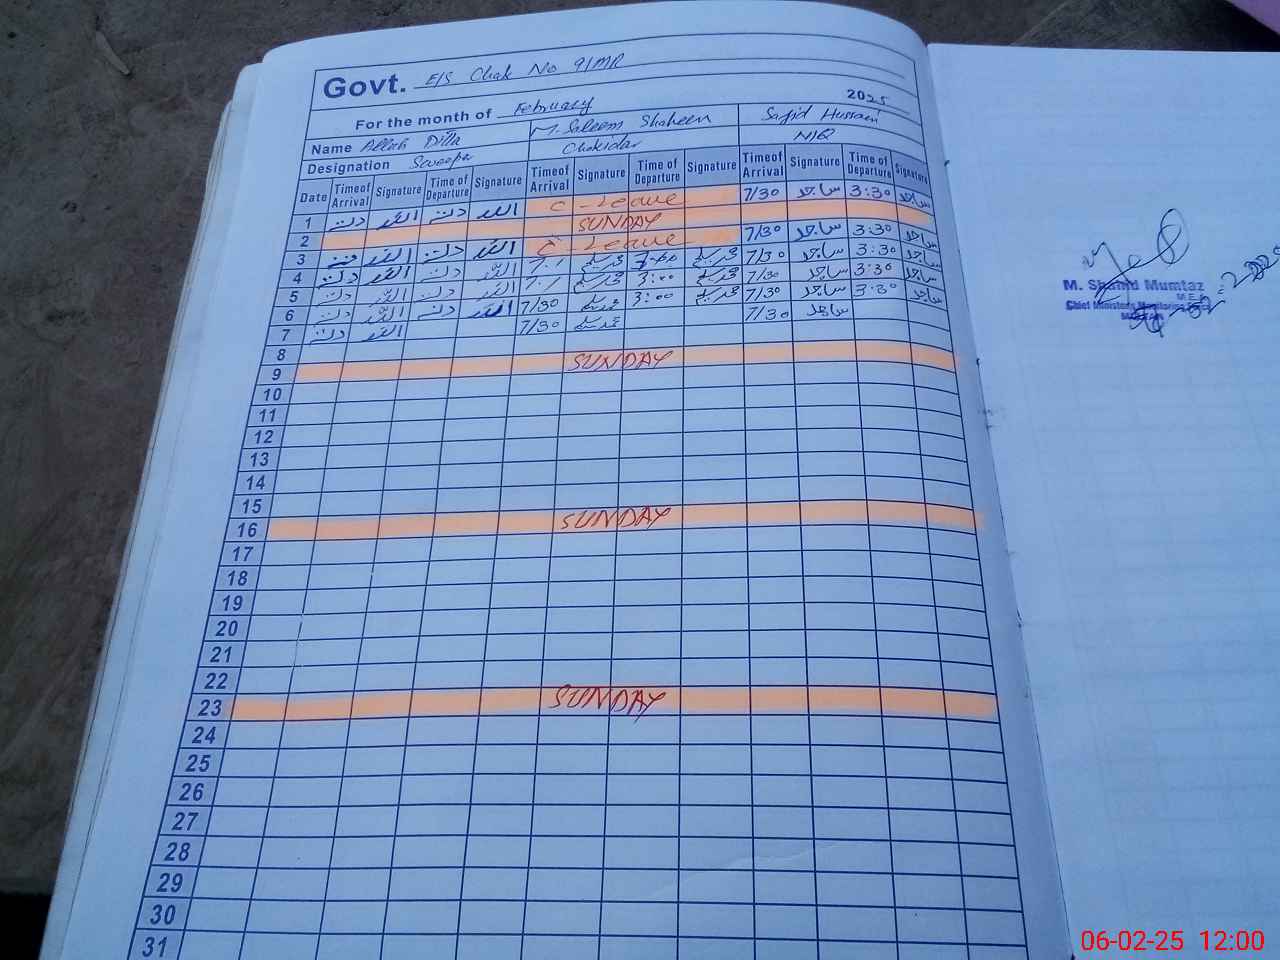 Govt. E/S Chak No 91MR
For the month of February 2025
Name Allah Ditta M. Saleem Shaheen Sajid Hussain
Designation Sweeper Chokidar N/Q
Date Time of Arrival Signature Time of Departure Signature Time of Arrival Signature Time of Departure Signature Time of Arrival Signature Time of Departure Signature
1 دتہ اللہ دتہ اللہ C - Leave 7/30 ساجد 3:30 ساجد
2 SUNDAY
3 دتہ اللہ دتہ اللہ C - Leave 7/30 ساجد 3:30 ساجد
4 دتہ اللہ دتہ اللہ 7/30 ساجد 3:30 ساجد
5 دتہ اللہ دتہ اللہ 3:00 7/30 ساجد 3:30 ساجد
6 دتہ اللہ دتہ اللہ 7/30 3:00 7/30 ساجد 3:30 ساجد
7 دتہ اللہ 7/30 7/30 ساجد
8
9 SUNDAY
10
11
12
13
14
15
16 SUNDAY
17
18
19
20
21
22
23 SUNDAY
24
25
26
27
28
29
30
31
M. Shahid Mumtaz
M.E.A
Chief Ministers Monitoring
06-02-25 12:00